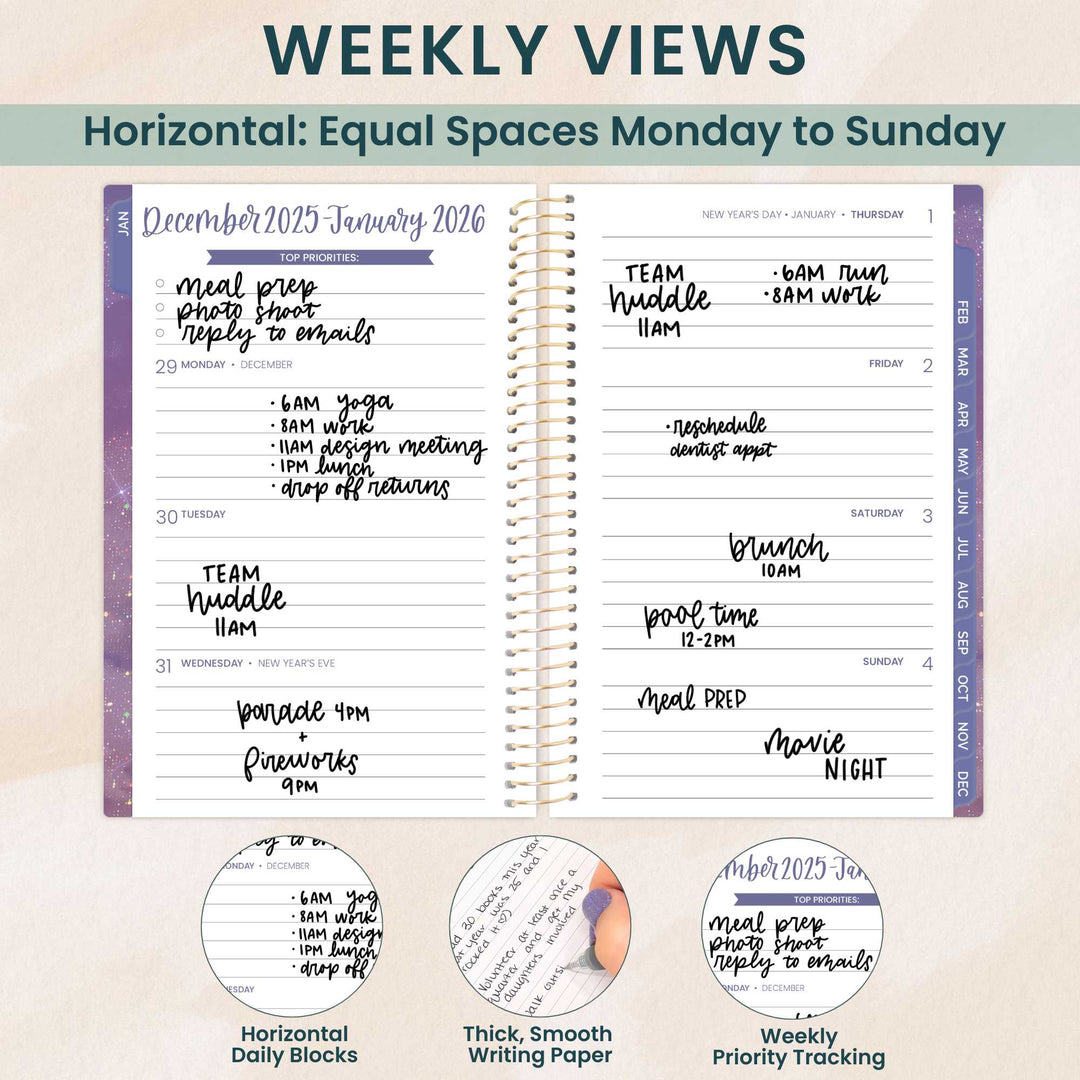 WEEKLY VIEWS
Horizontal: Equal Spaces Monday to Sunday
JAN
December 2025-January 2026
TOP PRIORITIES:
meal prep
photo shoot
reply to emails
29 MONDAY • DECEMBER
• 6AM yoga
• 8AM work
• 11AM design meeting
• 1PM lunch
• drop off returns
30 TUESDAY
TEAM
huddle
11AM
31 WEDNESDAY • NEW YEAR'S EVE
parade 4PM
+
fireworks
9PM
NEW YEAR'S DAY • JANUARY • THURSDAY 1
TEAM
huddle
11AM
• 6AM run
• 8AM work
FRIDAY 2
• reschedule
dentist appt
SATURDAY 3
brunch
10AM
pool time
12-2PM
SUNDAY 4
meal PREP
movie
NIGHT
FEB
MAR
APR
MAY
JUN
JUL
AUG
SEP
OCT
NOV
DEC
ly to em
ONDAY • DECEMBER
• 6AM yog
• 8AM work
• 11AM design
• 1PM lunch
• drop off
UESDAY
Horizontal
Daily Blocks
d 30 books this year
st year was 25 and I
rocked it ♡)
Volunteer at least once a
quarter and get my
daughters involved
alk outsi
Thick, Smooth
Writing Paper
mber 2025-Jan
TOP PRIORITIES:
meal prep
photo shoot
reply to emails
ONDAY • DECEMBER
Weekly
Priority Tracking